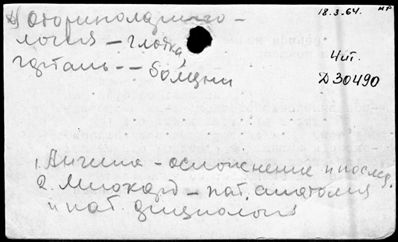 18.3.64.
Оторинолоринго-
логия – глотка,
гортань -- болезни
Чит.
Д30490
1. Ангина – осложнение и послед.
2. Миокард – пат. анатомия
и пат. физиология